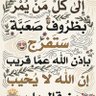 إلى كل من يمر
بظروف صعبة
ستفرج
بإذن الله عما قريب
إن الله لا يخيب